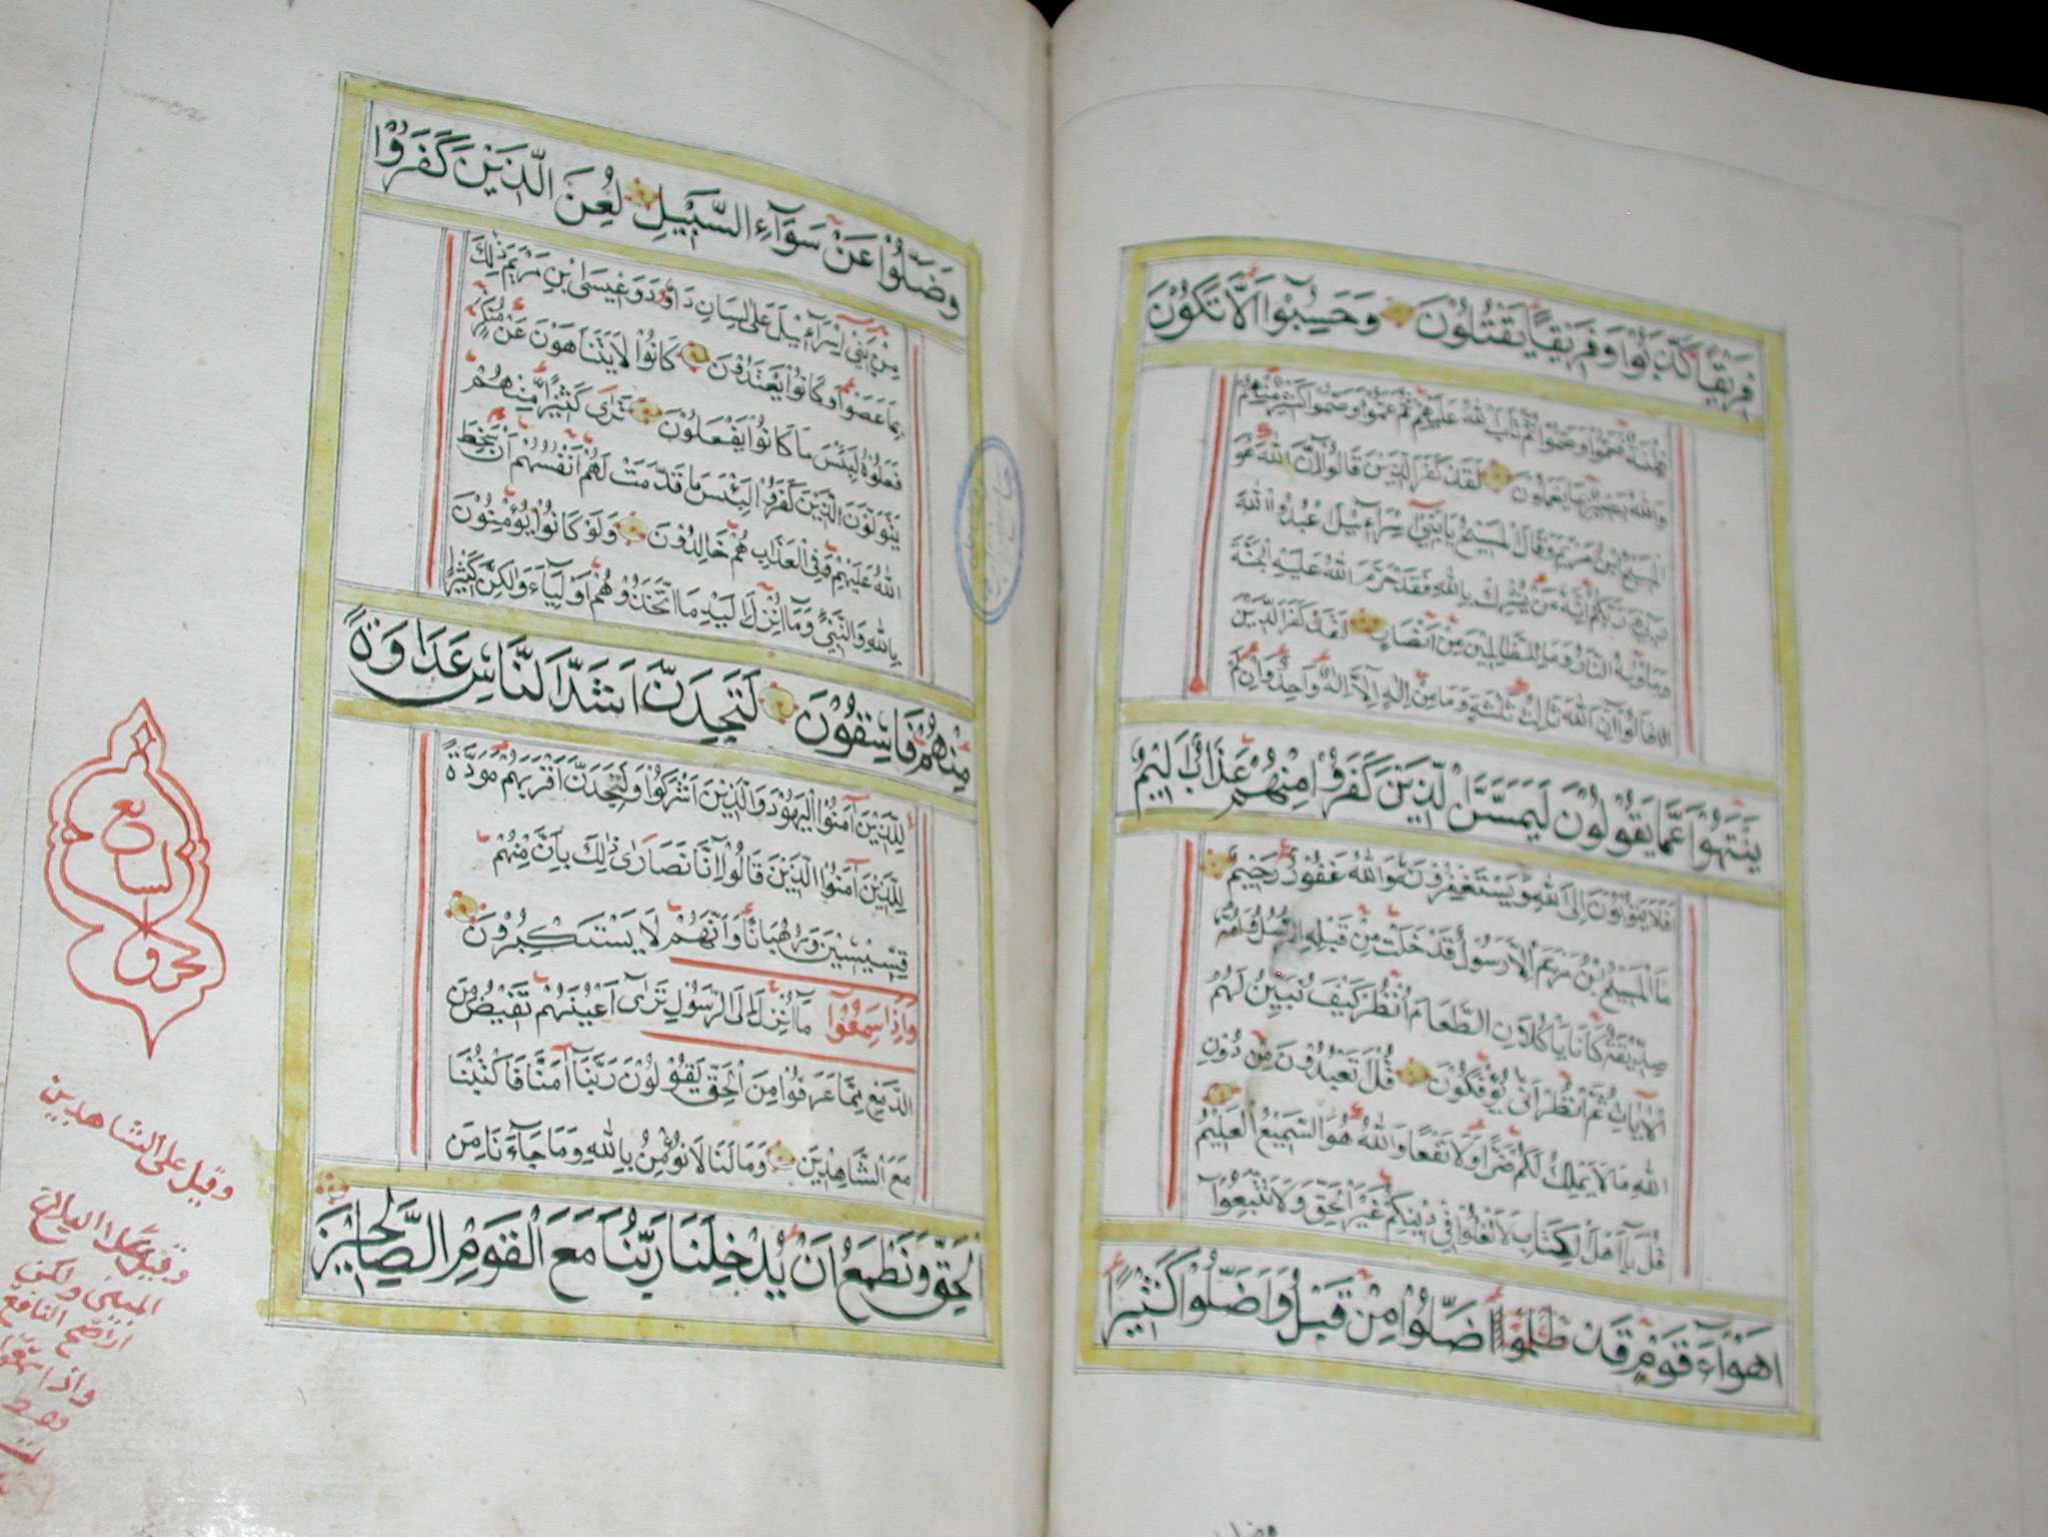 فَرِيقًا كَذَّبُوا وَفَرِيقًا يَقْتُلُونَ وَحَسِبُوا اَلَّا تَكُونَ
فِتْنَةٌ فَعَمُوا وَصَمُّوا ثُمَّ تَابَ اللهُ عَلَيْهِمْ ثُمَّ عَمُوا وَصَمُّوا كَثِيرٌ مِنْهُمْ
وَاللهُ بَصِيرٌ بِمَا يَعْمَلُونَ لَقَدْ كَفَرَ الَّذِينَ قَالُوا اِنَّ اللهَ هُوَ
الْمَسِيحُ ابْنُ مَرْيَمَ وَقَالَ الْمَسِيحُ يَا بَنِي اِسْرَآئِيلَ اعْبُدُوا اللهَ
رَبِّي وَرَبَّكُمْ اِنَّهُ مَنْ يُشْرِكْ بِاللهِ فَقَدْ حَرَّمَ اللهُ عَلَيْهِ الْجَنَّةَ
وَمَاْوٰيهُ النَّارُ وَمَا لِلظَّالِمِينَ مِنْ اَنْصَارٍ لَقَدْ كَفَرَ الَّذِينَ
قَالُوا اِنَّ اللهَ ثَالِثُ ثَلٰثَةٍ وَمَا مِنْ اِلٰهٍ اِلَّا اِلٰهٌ وَاحِدٌ وَاِنْ لَمْ
يَنْتَهُوا عَمَّا يَقُولُونَ لَيَمَسَّنَّ الَّذِينَ كَفَرُوا مِنْهُمْ عَذَابٌ اَلِيمٌ
اَفَلَا يَتُوبُونَ اِلَى اللهِ وَيَسْتَغْفِرُونَهُ وَاللهُ غَفُورٌ رَحِيمٌ
مَا الْمَسِيحُ بْنُ مَرْيَمَ اِلَّا رَسُولٌ قَدْ خَلَتْ مِنْ قَبْلِهِ الرُّسُلُ وَاُمُّهُ
صِدِّيقَةٌ كَانَا يَاْكُلَانِ الطَّعَامَ اُنْظُرْ كَيْفَ نُبَيِّنُ لَهُمُ
الْاٰيَاتِ ثُمَّ انْظُرْ اَنّٰى يُؤْفَكُونَ قُلْ اَتَعْبُدُونَ مِنْ دُونِ
اللهِ مَا لَا يَمْلِكُ لَكُمْ ضَرًّا وَلَا نَفْعًا وَاللهُ هُوَ السَّمِيعُ الْعَلِيمُ
قُلْ يَا اَهْلَ الْكِتَابِ لَا تَغْلُوا فِي دِينِكُمْ غَيْرَ الْحَقِّ وَلَا تَتَّبِعُوا
اَهْوَآءَ قَوْمٍ قَدْ ظَلَمُوا ضَلُّوا مِنْ قَبْلُ وَاَضَلُّوا كَثِيرًا
وَضَلُّوا عَنْ سَوَآءِ السَّبِيلِ لُعِنَ الَّذِينَ كَفَرُوا
مِنْ بَنِي اِسْرَآئِيلَ عَلَى لِسَانِ دَاوُدَ وَعِيسَى ابْنِ مَرْيَمَ ذٰلِكَ
بِمَا عَصَوْا وَكَانُوا يَعْتَدُونَ كَانُوا لَا يَتَنَاهَوْنَ عَنْ مُنْكَرٍ
فَعَلُوهُ لَبِئْسَ مَا كَانُوا يَفْعَلُونَ تَرَى كَثِيرًا مِنْهُمْ
يَتَوَلَّوْنَ الَّذِينَ كَفَرُوا لَبِئْسَ مَا قَدَّمَتْ لَهُمْ اَنْفُسُهُمْ اَنْ سَخِطَ
اللهُ عَلَيْهِمْ وَفِي الْعَذَابِ هُمْ خَالِدُونَ وَلَوْ كَانُوا يُؤْمِنُونَ
بِاللهِ وَالنَّبِيِّ وَمَا اُنْزِلَ اِلَيْهِ مَا اتَّخَذُوهُمْ اَوْلِيَآءَ وَلٰكِنَّ كَثِيرًا
مِنْهُمْ فَاسِقُونَ لَتَجِدَنَّ اَشَدَّ النَّاسِ عَدَاوَةً
لِلَّذِينَ اٰمَنُوا الْيَهُودَ وَالَّذِينَ اَشْرَكُوا وَلَتَجِدَنَّ اَقْرَبَهُمْ مَوَدَّةً
لِلَّذِينَ اٰمَنُوا الَّذِينَ قَالُوا اِنَّا نَصَارٰى ذٰلِكَ بِاَنَّ مِنْهُمْ
قِسِّيسِينَ وَرُهْبَانًا وَاَنَّهُمْ لَا يَسْتَكْبِرُونَ
وَاِذَا سَمِعُوا مَآ اُنْزِلَ اِلَى الرَّسُولِ تَرٰٓى اَعْيُنَهُمْ تَفِيضُ مِنَ
الدَّمْعِ مِمَّا عَرَفُوا مِنَ الْحَقِّ يَقُولُونَ رَبَّنَا اٰمَنَّا فَاكْتُبْنَا
مَعَ الشَّاهِدِينَ وَمَا لَنَا لَا نُؤْمِنُ بِاللهِ وَمَا جَآءَنَا مِنَ
الْحَقِّ وَنَطْمَعُ اَنْ يُدْخِلَنَا رَبُّنَا مَعَ الْقَوْمِ الصَّالِحِينَ
وقيل على الشاهدين